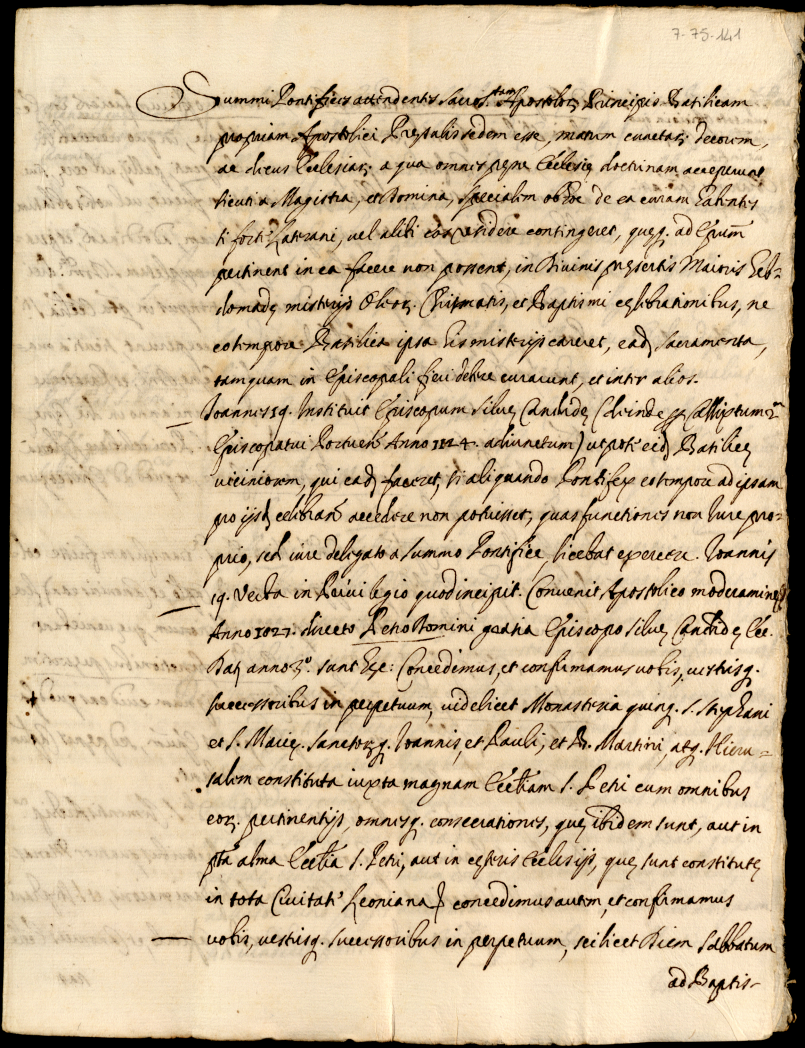 7-75-141
Summi Pontifices attendentes Sacros.tam Apostolor. Principis Basilicam
propriam Apostolici Presulis sedem esse, matrem cunctar., decorem,
ac decus Ecclesiar., a qua omnes pene Ecclesię doctrinam acceperunt
sicuti a Magistra, et Domina, specialem de ea curam habentes
si forte Laterani, vel alibi eos residere contingeret, quęq. ad Epum
pertinent in ea facere non possent, in Divinis pręsertim Maioris Heb-
domadę misterijs Oleor. Chrismatis, et Baptismi cęlebrationibus, ne
eo tempore Basilica ipsa his misterijs careret, ead. sacramenta,
tamquam in Episcopali fieri debere curarunt, et inter alios.
Ioannes 19. Instituit Episcopum Siluę Candidę (deinde Callixtum 2.m
Episcopatui Portuens. Anno 1124. adiunctum) utpote eid. Basilicę
uiciniorem, qui ead. faceret, si aliquando Pontifex eo tempore ad ipsam
pro ijsd. celebran. accedere non potuisset, quas functiones non Iure pro-
prio, sed iure delegato a Summo Pontifice, licebat exercere. Ioannis
19. Verba in Priuilegio quod incipit. Convenit Apostolico moderamine
Anno 1027. directo Petro Domini gratia Episcopo Siluę Candidę &c.
Dat. anno 3.o sunt hęc: Concedimus, et confirmamus uobis, uestrisq.
successoribus in perpetuum, uidelicet Monasteria quinq. S. Stephani
et S. Marię. Sanctorq. Ioannis, et Pauli, et B. Martini, atq. Hieru-
salem constituta iuxta magnam Eccliam S. Petri cum omnibus
eor. pertinentijs, omnesq. consecrationes, quę ibidem sunt, aut in
pta alma Ecclia S. Petri, aut in cęteris Ecclesijs, quę sunt constitutę
in tota Ciuitate Leoniana concedimus autem, et confirmamus
uobis, uestrisq. successoribus in perpetuum, scilicet Diem Sabbatum
ad Baptis-